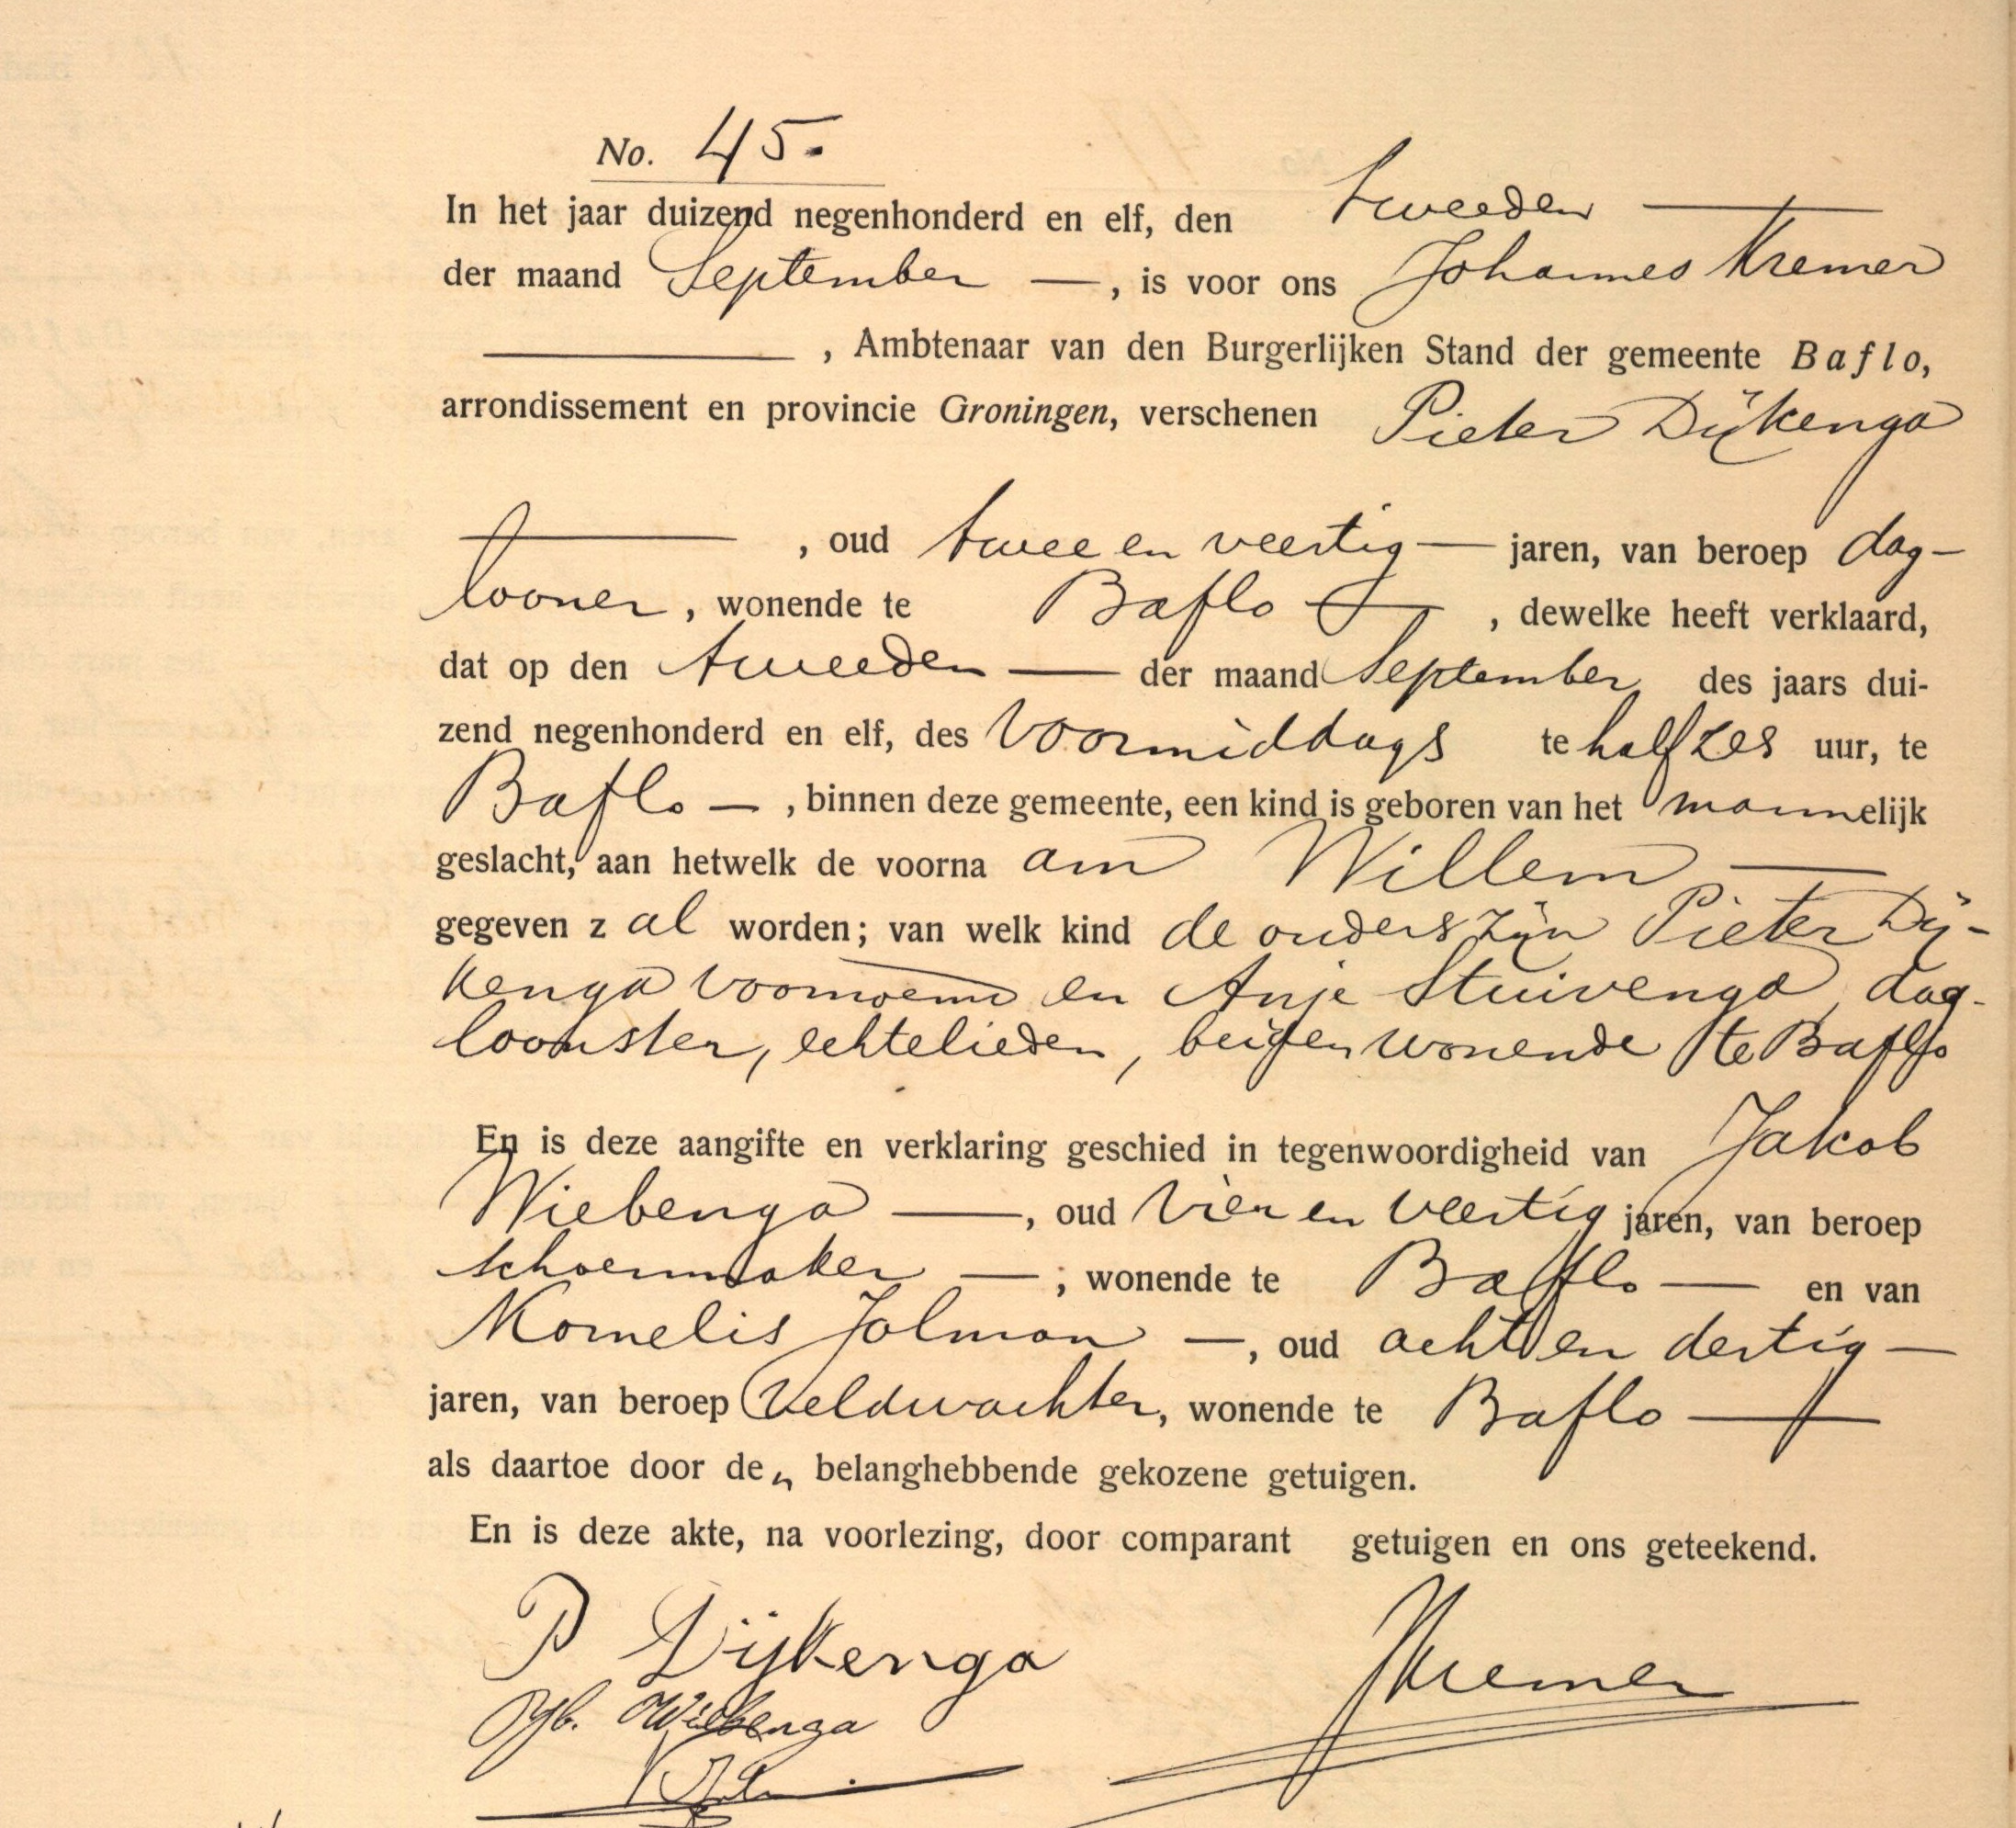 No. 45.
In het jaar duizend negenhonderd en elf, den tweeden
der maand September, is voor ons Johannes Kremer
, Ambtenaar van den Burgerlijken Stand der gemeente Baflo,
arrondissement en provincie Groningen, verschenen Pieter Dijkenga
, oud twee en veertig jaren, van beroep dag-
looner, wonende te Baflo, dewelke heeft verklaard,
dat op den tweeden der maand September des jaars dui-
zend negenhonderd en elf, des voormiddags te half zes uur, te
Baflo, binnen deze gemeente, een kind is geboren van het mannelijk
geslacht, aan hetwelk de voornaam Willem
gegeven zal worden; van welk kind de ouders zijn Pieter Dij-
kenga voornoemd en Anje Stuivenga, dag-
loonster, echtelieden, beiden wonende te Baflo
En is deze aangifte en verklaring geschied in tegenwoordigheid van Jakob
Wiebenga, oud vier en veertig jaren, van beroep
schoenmaker; wonende te Baflo en van
Kornelis Jolman, oud acht en dertig
jaren, van beroep veldwachter, wonende te Baflo
als daartoe door den belanghebbende gekozene getuigen.
En is deze akte, na voorlezing, door comparant getuigen en ons geteekend.
P Dijkenga JKremer
Jb. Wiebenga